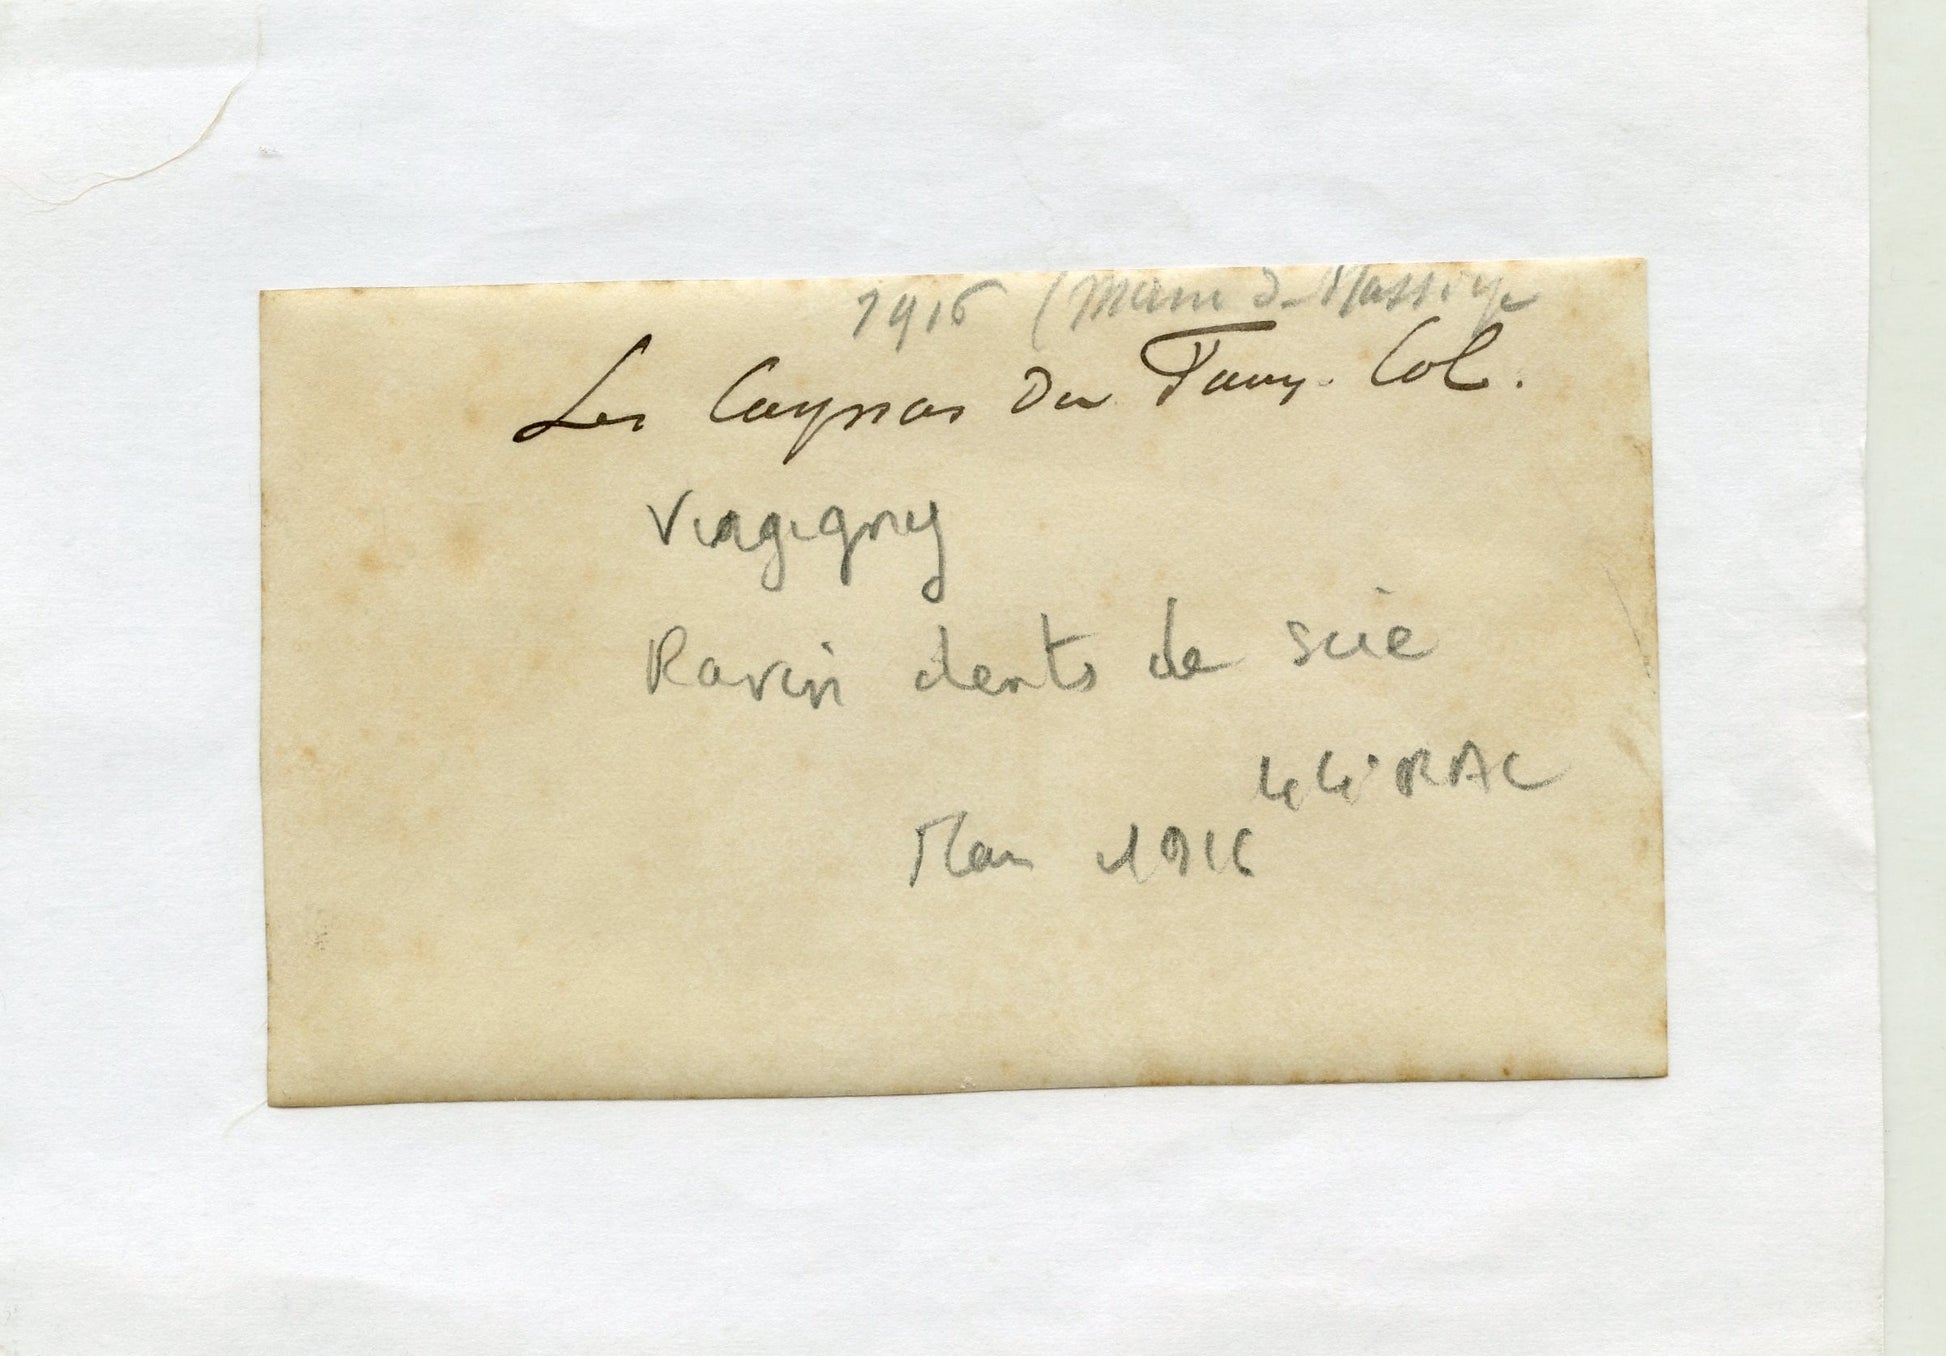 1916 (Main de Massiges
Les Cagnas du Tauy. Col.
Virgigny
Ravin dents de scie
44° RAC
Mars 1916